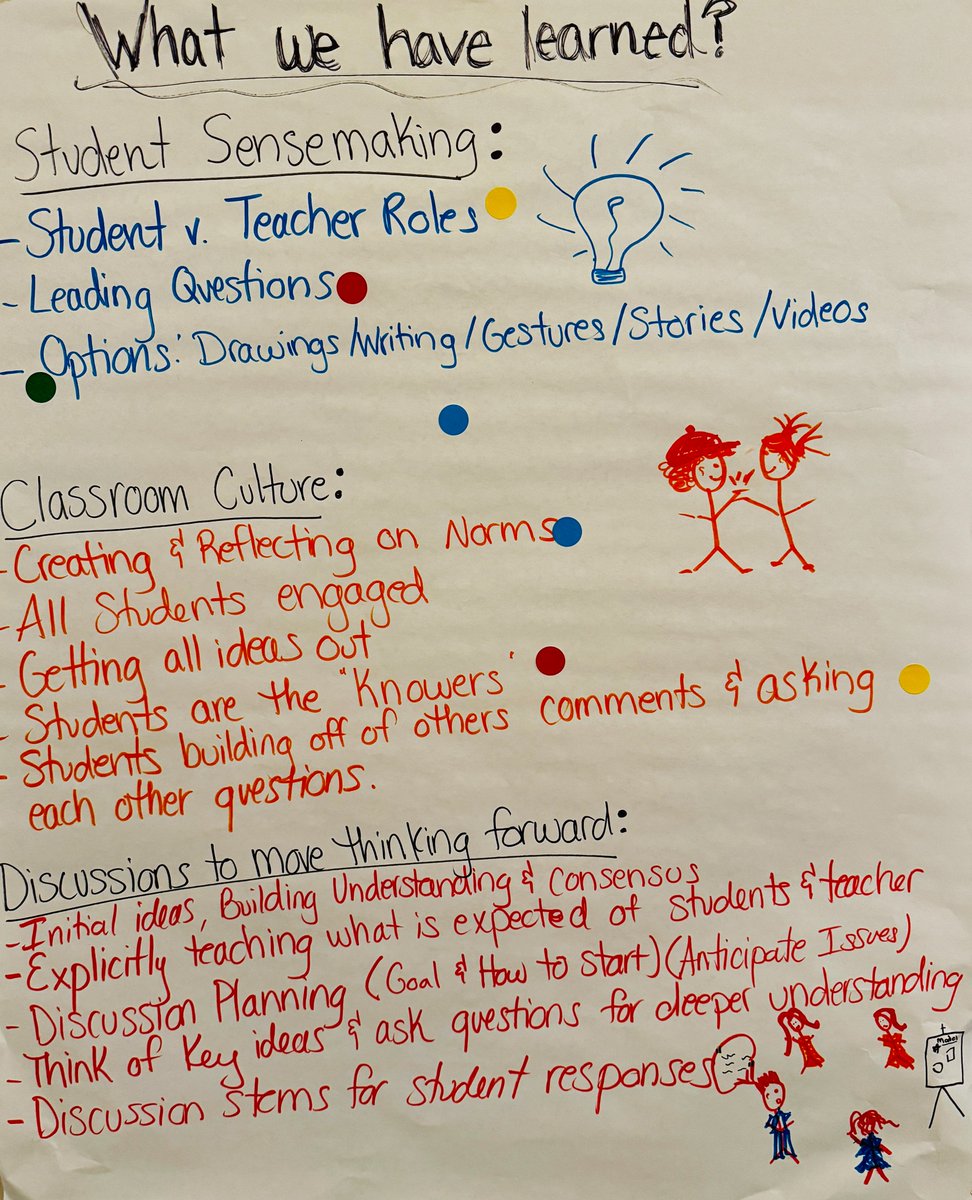 What we have learned?
Student Sensemaking:
- Student v. Teacher Roles
- Leading Questions
- Options: Drawings/Writing/Gestures/Stories/Videos
Classroom Culture:
- Creating & Reflecting on Norms
- All Students engaged
- Getting all ideas out
- Students are the "Knowers"
- Students building off of others comments & asking
each other questions.
Discussions to move thinking forward:
- Initial ideas, Building Understanding & Consensus
- Explicitly teaching what is expected of students & teacher
- Discussion Planning (Goal & How to Start) (Anticipate Issues)
- Think of key ideas & ask questions for deeper understanding
- Discussion stems for student responses
Model